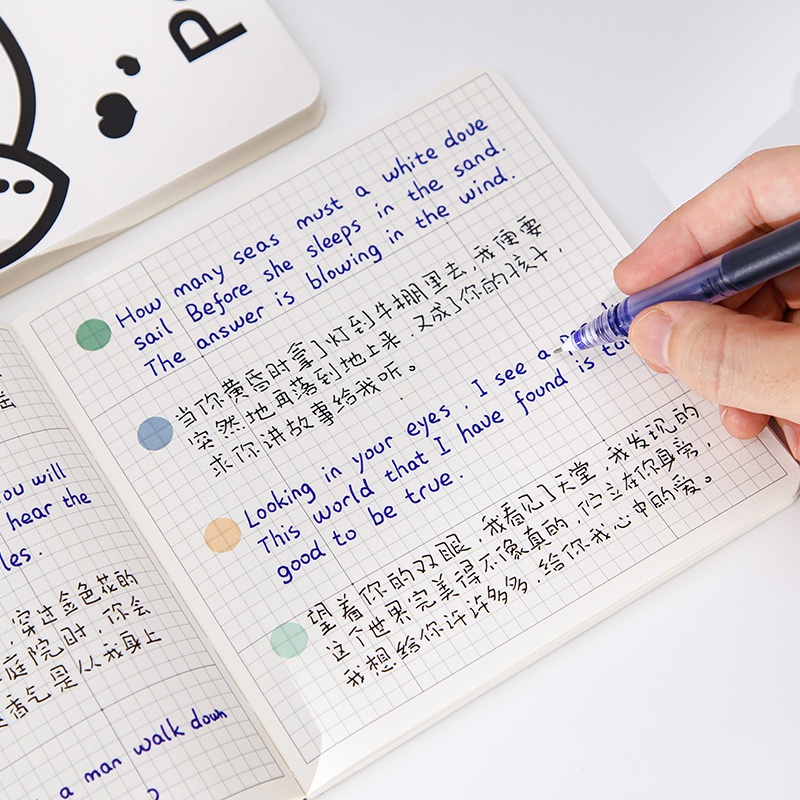 you will
hear the
les.
穿过金色花的
庭院时,你会
香气是从我身上
a man walk down
How many seas must a white dove
sail Before she sleeps in the sand.
The answer is blowing in the wind.
当你黄昏时拿了灯到牛棚里去,我便要
突然地再落到地上来,又成了你的孩子,
求你讲故事给我听。
Looking in your eyes, I see a
This world that I have found is
good to be true.
望着你的双眼,我看见了天堂,我发现的
这个世界完美得不像真的,伫立在你身旁,
我想给你许许多多,给你我心中的爱。